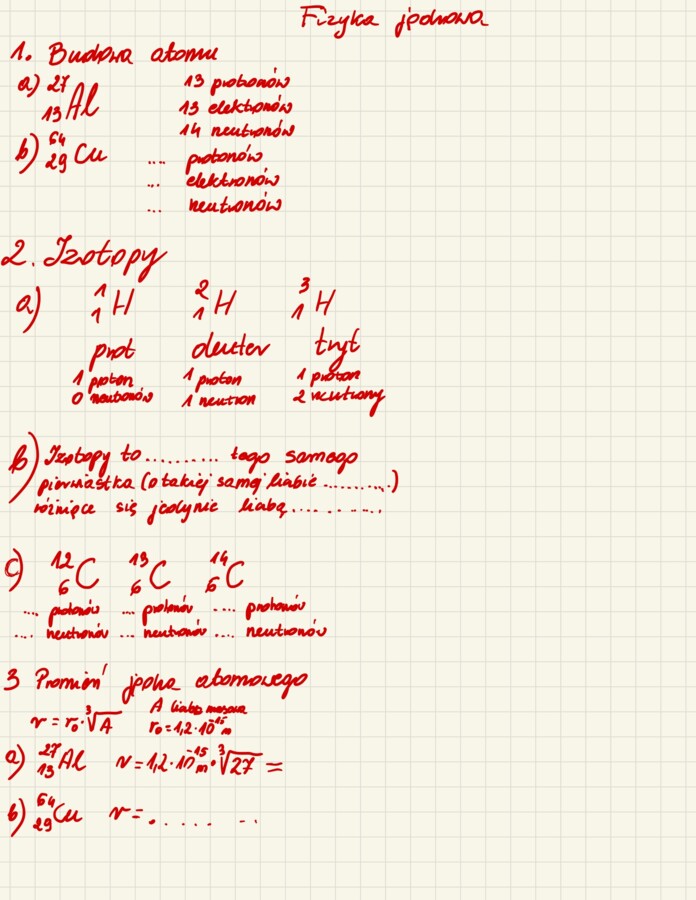 Fizyka jądrowa
1. Budowa atomu
a) ²⁷₁₃Al 13 protonów
13 elektronów
14 neutronów
b) ⁶⁴₂₉Cu .... protonów
... elektronów
... neutronów
2. Izotopy
a) ¹₁H ²₁H ³₁H
prot deuter tryt
1 proton 1 proton 1 proton
0 neutronów 1 neutron 2 neutrony
b) Izotopy to .......... tego samego
pierwiastka (o takiej samej liczbie ..........)
różniące się jedynie liczbą ............
c) ¹²₆C ¹³₆C ¹⁴₆C
.... protonów ... protonów .... protonów
.... neutronów ... neutronów .... neutronów
3 Promień jądra atomowego
r = r₀·∛A A liczba masowa
r₀ = 1,2·10⁻¹⁵ m
a) ²⁷₁₃Al r = 1,2·10⁻¹⁵ m · ∛27 =
b) ⁶⁴₂₉Cu r = . . . . . . .